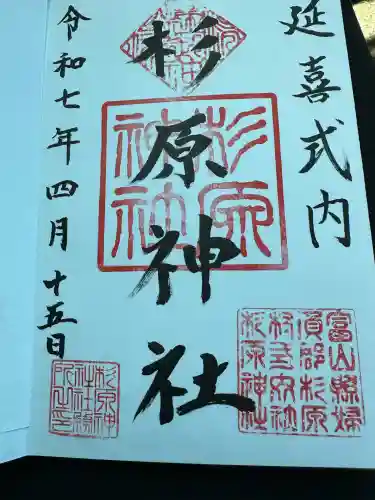 延喜式内
杉原神社
令和七年四月十五日
杉原
神社
富山縣婦
負郡杉原
杉原神社
杉原神
社社務
所之印